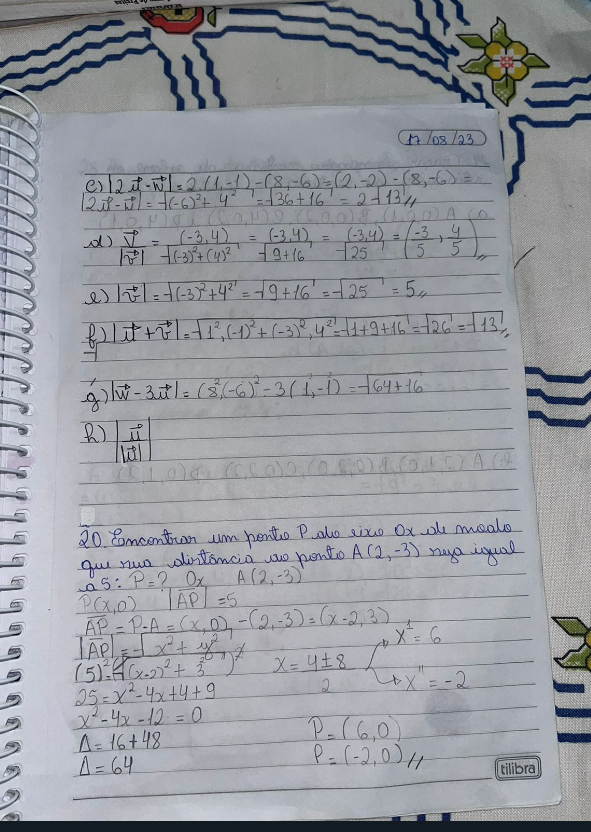 17/08/23
c) |2u⃗-w⃗| = 2.(1,-1)-(8,-6)=(2,-2)-(8,-6)=
|2u⃗-w⃗|=√(-6)²+4² =√36+16 = 2√13//
d) v⃗/|v⃗| = (-3,4)/√(-3)²+(4)² = (-3,4)/√9+16 = (-3,4)/√25 = (-3/5, 4/5)//
e) |v⃗|=√(-3)²+4² =√9+16 =√25 = 5//
f) |u⃗+v⃗|=√1²,(-1)²+(-3)²,4² =√1+9+16 =√26 =√13//
g) |w⃗-3u⃗| = (8²,(-6)²-3(1,-1) =√64+16
h) |u⃗/|u⃗||
20. Encontrar um ponto P do eixo Ox de modo
que sua distância ao ponto A(2,-3) seja igual
a 5: P=? Ox A(2,-3)
P(x,0) |AP|=5
AP = P-A = (x,0)-(2,-3)=(x-2,3)
|AP|=√x²+y²
(5)²=(√(x-2)²+3²)² x = 4±8/2 x' = 6
25=x²-4x+4+9 x'' = -2
x²-4x-12=0
Δ=16+48 P=(6,0)
Δ=64 P=(-2,0)//
tilibra